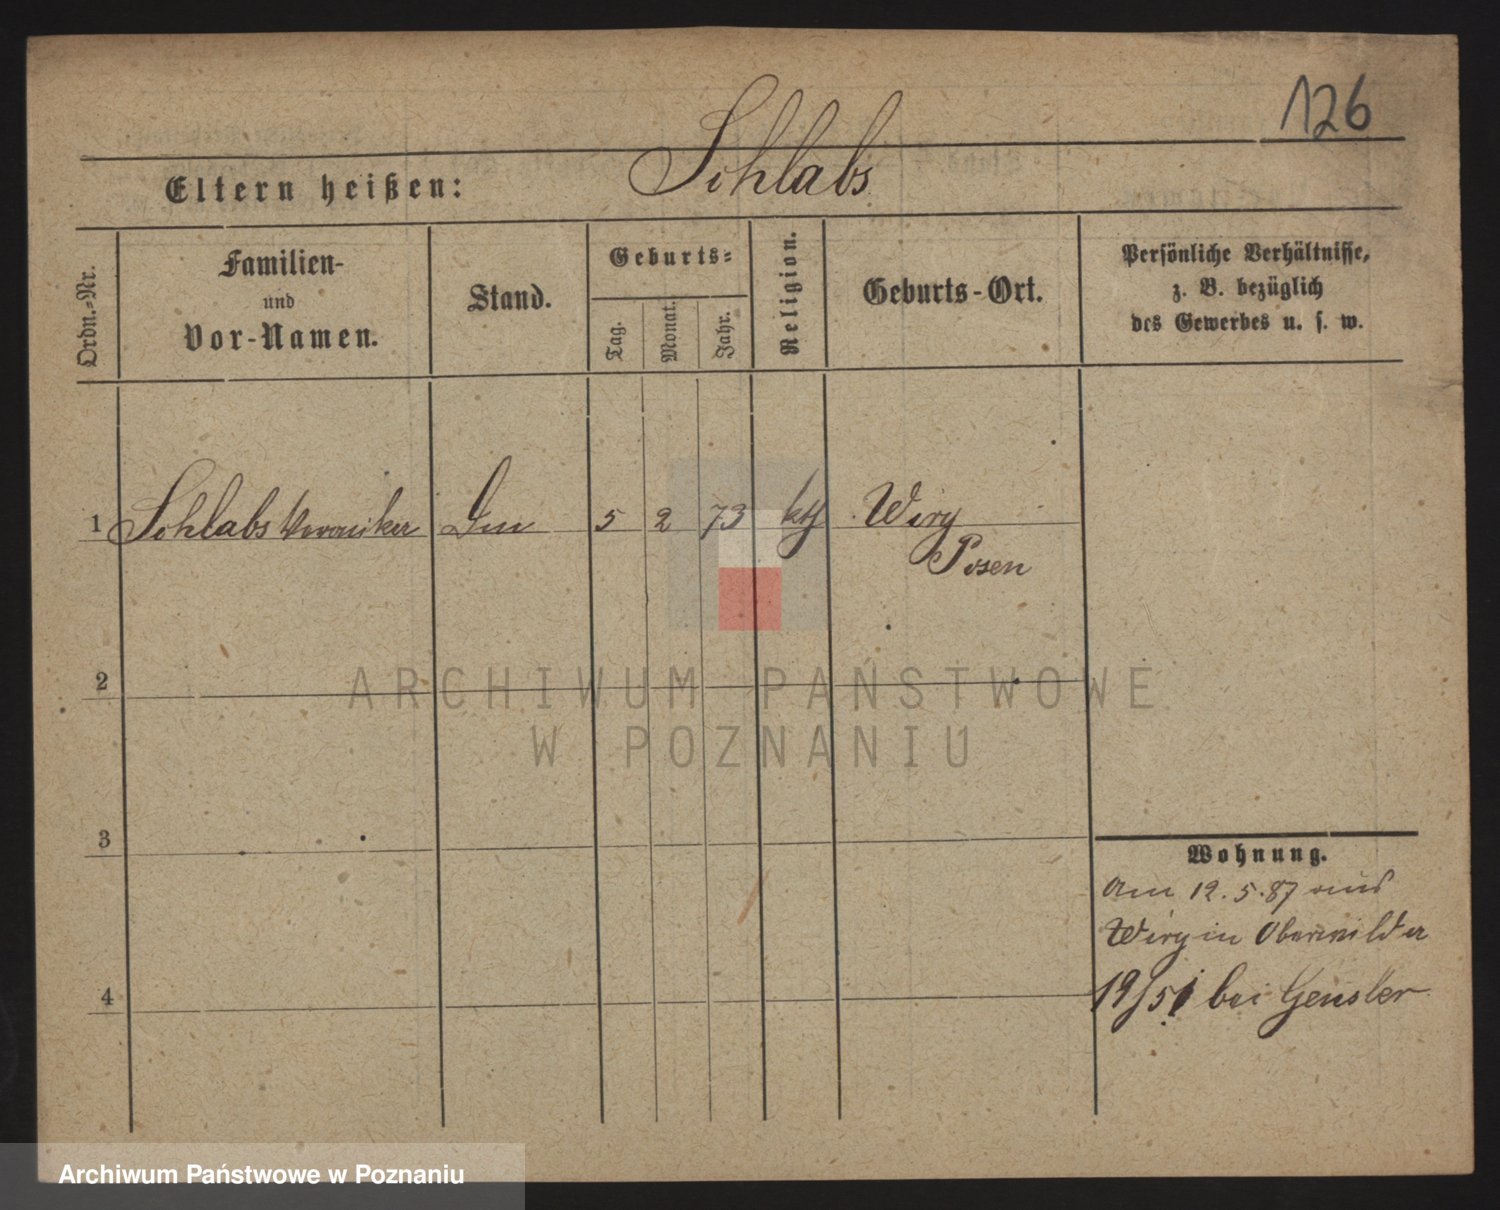 126
Schlabs
Eltern heißen:
Ordn.-Nr.
Familien-
und
Vor-Namen.
Stand.
Geburts-
Tag.
Monat.
Jahr.
Religion.
Geburts-Ort.
Persönliche Verhältnisse,
z. B. bezüglich
des Gewerbes u. s. w.
1 Schlabs Veronika 5 2 73 kth Wiry
Posen
2
ARCHIWUM PAŃSTWOWE
W POZNANIU
3
Wohnung.
Am 12.5.87 aus
Wiry in Oberwilda
4
19/5 bei Gensler
Archiwum Państwowe w Poznaniu